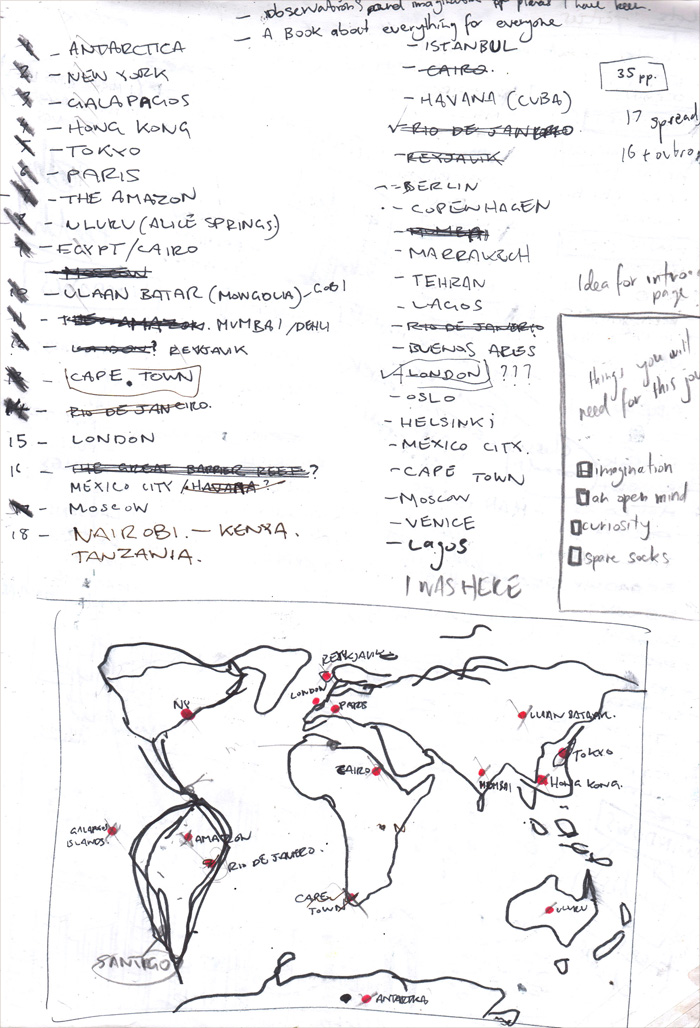 - observations and imaginations of places I have been.
- A Book about everything for everyone
1 - ANTARCTICA
2 - NEW YORK
3 - GALAPAGOS
4 - HONG KONG
5 - TOKYO
6 - PARIS
- THE AMAZON
8 - ULURU (ALICE SPRINGS)
- EGYPT/CAIRO
MOSCOW
- ULAAN BATAR (MONGOLIA) - GOBI
- THE AMAZON. MUMBAI/DEHLI
- LONDON? REYKJAVIK
CAPE TOWN
14 - RIO DE JANEIRO.
15 - LONDON
16 - THE GREAT BARRIER REEF?
MEXICO CITY / HAVANA?
- MOSCOW
18 - NAIROBI. - KENYA.
TANZANIA.
- ISTANBUL
- CAIRO.
- HAVANA (CUBA)
- RIO DE JANEIRO
- REYJAVIK
- BERLIN
- COPENHAGEN
- MUMBAI
- MARRAKECH
- TEHRAN
- LAGOS
- RIO DE JANERIO
- BUENOS ARES
- LONDON ???
- OSLO
- HELSINKI
- MEXICO CITY.
- CAPE TOWN
- MOSCOW
- VENICE
- Lagos
I WAS HERE
35 pp.
17 spread
16 + outro
Idea for intro
page
things you will
need for this jou
imagination
an open mind
curiosity
spare socks
REYKJAVIK
LONDON
PARIS
NY
ULAAN BATAAR.
TOKYO
CAIRO
MUMBAI
HONG KONG.
GALAPAGOS
ISLANDS.
AMAZON
N
RIO DE JANERO.
CAPE
TOWN
ULURU
SANTIAGO
ANTARTIKA